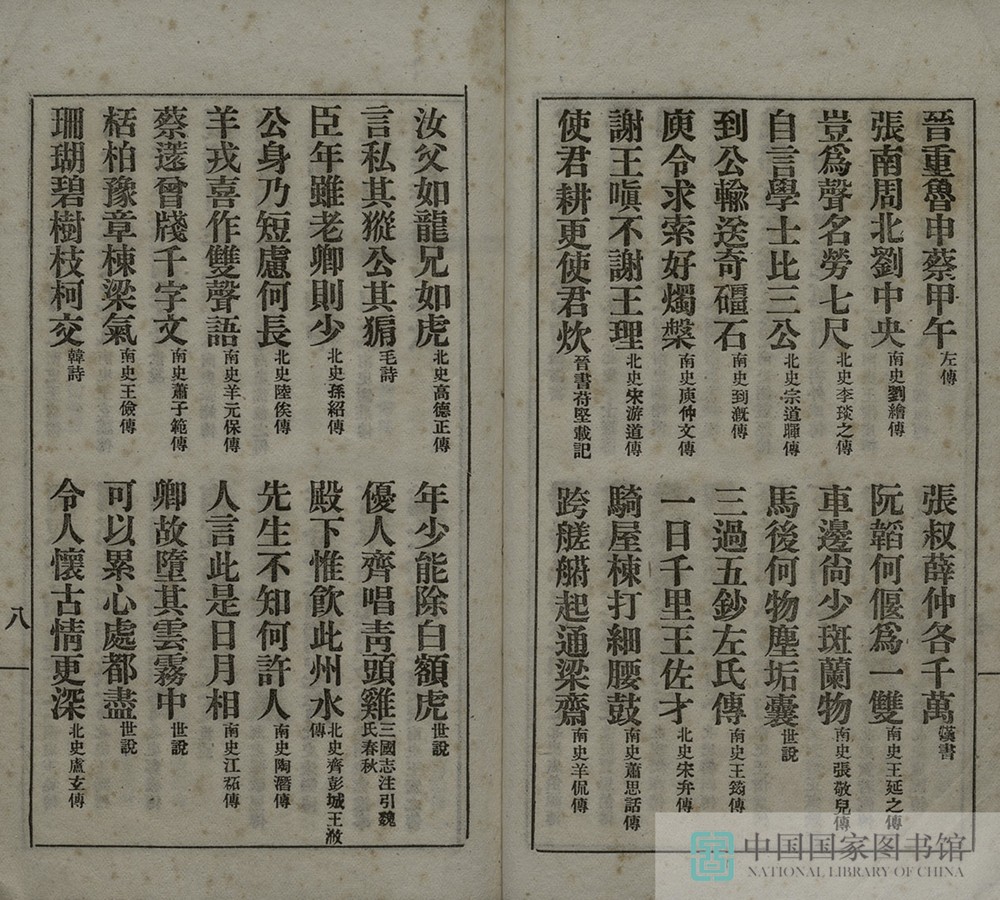 晉重魯申蔡甲午左傳 張叔薛仲各千萬漢書
張南周北劉中央南史劉繪傳 阮韜何偃爲一雙南史王延之傳
豈爲聲名勞七尺北史李琰之傳 車邊尙少斑蘭物南史張敬兒傳
自言學士比三公北史宗道暉傳 馬後何物塵垢囊世說
到公輸送奇礓石南史到漑傳 三過五鈔左氏傳南史王筠傳
庾令求索好燭槃南史庾仲文傳 一日千里王佐才北史宋弁傳
謝王嗔不謝王理北史宋游道傳 騎屋棟打細腰鼓南史蕭思話傳
使君耕更使君炊晉書苻堅載記 跨艖䑠起通梁齋南史羊侃傳
汝父如龍兄如虎北史高德正傳 年少能除白額虎世說
言私其豵公其豜毛詩 優人齊唱靑頭雞三國志注引魏氏春秋
臣年雖老卿則少北史孫紹傳 殿下惟飮此州水北史齊彭城王浟傳
公身乃短慮何長北史陸俟傳 先生不知何許人南史陶潛傳
羊戎喜作雙聲語南史羊元保傳 人言此是日月相南史江祏傳
蔡薳曾牋千字文南史蕭子範傳 卿故墮其雲霧中世說
栝柏豫章棟梁氣南史王儉傳 可以累心處都盡世說
珊瑚碧樹枝柯交韓詩 令人懷古情更深北史盧玄傳
八
中国国家图书馆
NATIONAL LIBRARY OF CHINA